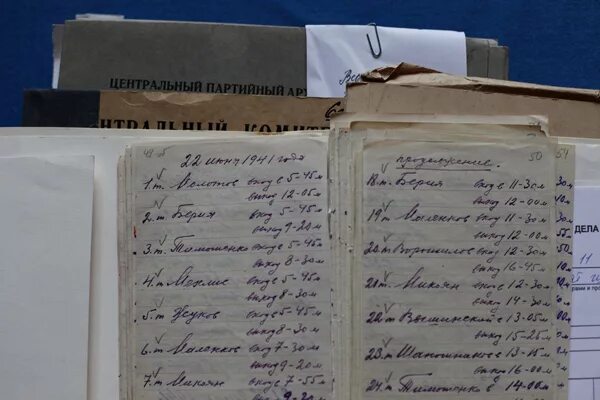 ЦЕНТРАЛЬНЫЙ ПАРТИЙНЫЙ АР
НТРАЛЬНЫЙ КОМИТЕ
49
22 июня 1941 года
1. т. Молотов вход в 5-45 м
выход 12-05 м
2. т. Берия вход 5-45 м
выход 9-20 м
3. т. Тимошенко вход в 5-45 м
выход 8-30 м
4. т. Мехлис вход в 5-45 м
выход 8-30 м
5. т. Жуков вход в 5-45 м
выход 8-30 м
6. т. Маленков вход 7-30 м
выход 9-20 м
7. т. Микоян вход в 7-55 м
выход 9-20
50
продолжение.
18. т. Берия вход в 11-30 м
выход 12-00 м
19. т. Маленков вход 11-30 м
выход 12-00 м
20. т. Ворошилов вход 12-00 м
выход 16-45 м
21. т. Микоян вход в 12-30 м
выход 14-30 м
22. т. Вышинский в 13-05 м
выход 15-25 м
23. т. Шапошников в 13-15 м
выход 16-00 м
24. т. Тимошенко в 14-00 м
54
ДЕЛА
11